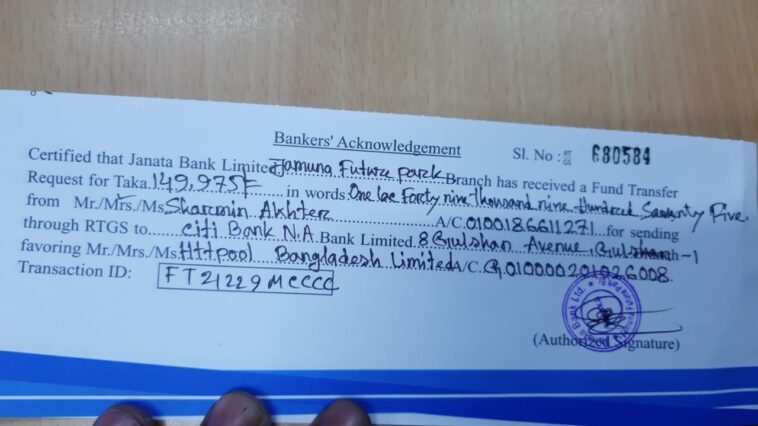 Bankers' Acknowledgement
Sl. No : RTGS 680584
Certified that Janata Bank Limited Jamuna Future park Branch has received a Fund Transfer
Request for Taka. 149,975/= in words. One lac Forty nine thousand nine Hundred Seventy Five
from Mr./Mrs./Ms Sharmin Akhter A/C. 0100186611271 for sending
through RTGS to Citi Bank N.A Bank Limited. 8 Gulshan Avenue, Gulshan-1
favoring Mr./Mrs./Ms. Httpool Bangladesh Limited A/C.
Transaction ID: FT21229MCCCC
(Authorized Signature)